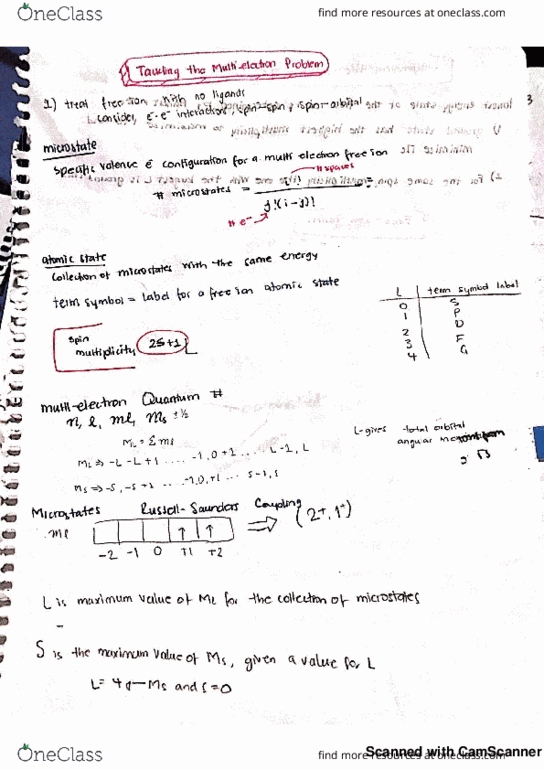 OneClass
find more resources at oneclass.com
Tackling the Multi-electron Problem
1) treat free ion with no ligands
consider, e-e- interaction, spin-spin, spin-orbital
3
microstate
specific valence e- configuration for a multi electron free ion
# spaces
# microstates =
j!(i-j)!
# e-
atomic state
collection of microstates with the same energy
term symbol = label for a free ion atomic state
L term symbol label
0 S
1 P
2 D
3 F
4 G
spin
multiplicity 2S+1 L
multi-electron Quantum #
n, l, ml, ms ±½
ML = Σ ml
L-gives total orbital
angular
ML => -L -L+1 .... -1,0+1 .... L-1, L
ms => -S, -S+1 ... -1,0,+1 ... S-1, S
Microstates Russell-Saunders Coupling
ml ↑ ↑ => (2+, 1+)
-2 -1 0 +1 +2
L is maximum value of ML for the collection of microstates
S is the maximum value of Ms, given a value for L
L= 4 and S=0
OneClass
find more resources at oneclass.com
Scanned with CamScanner